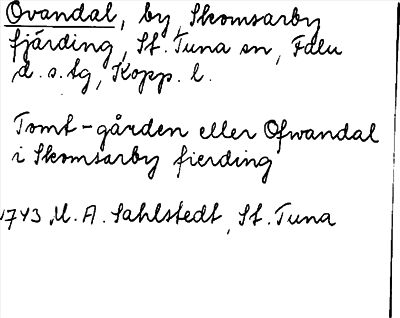 Ovandal, by, Skomsarby
fjärding, St. Tuna sn, Falu
d. s. tg, Kopp. l.
Tomt-gården eller Ofwandal
i Skomsarby fierding
1743 M. A. Sahlstedt, St. Tuna